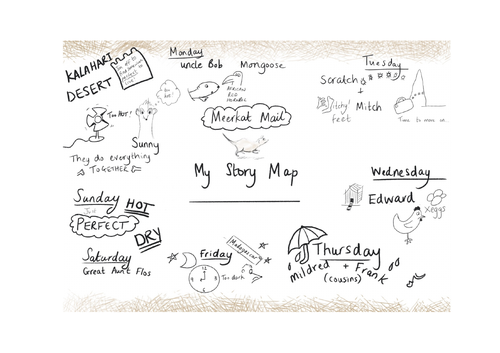 KALAHARI
DESERT
Too HOT!
Sunny
They do everything
TOGETHER
Monday
uncle Bob
Mongoose
Meerkat Mail
My Story Map
Tuesday
Scratch
+
Mitch
Itchy
feet
Time to move on
Wednesday
Edward
x eggs
Thursday
mildred + Frank
(cousins)
Friday
Madagascar
Too dark
12
Saturday
Great Aunt Flos
Sunday
HOT
PERFECT
DRY